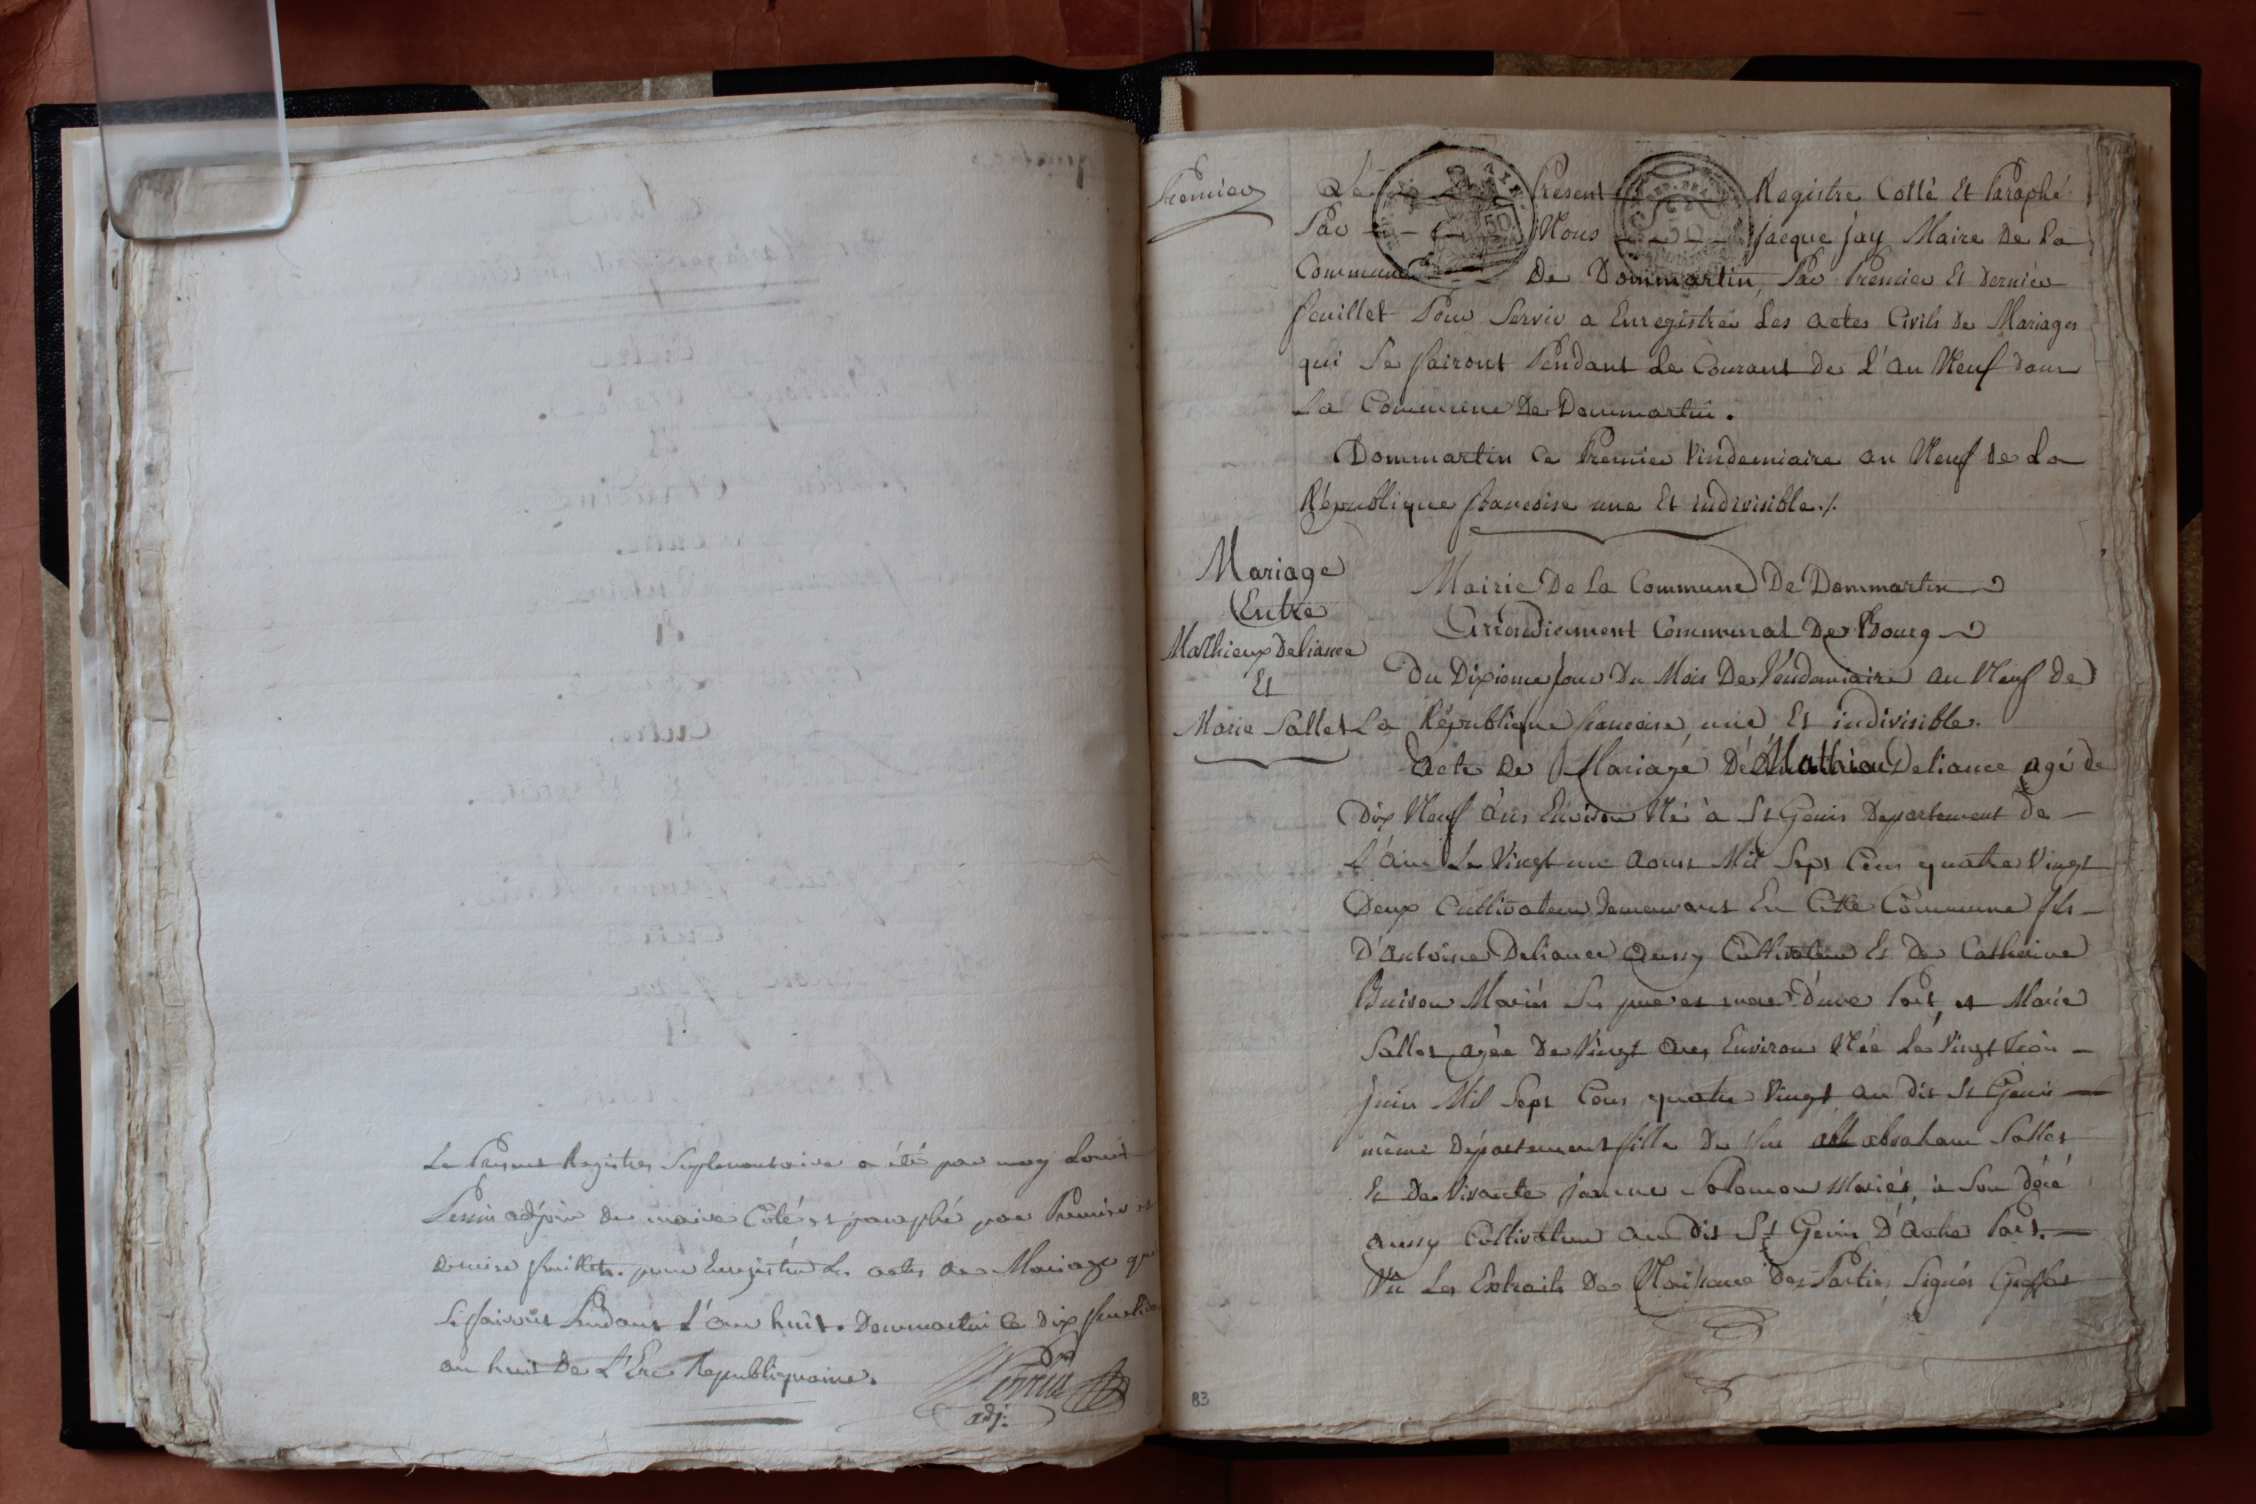 Le Present Registres Suplementaire a été par moy Louis
Perrin adjoin de maire Coté et paraphé par Premier et
dernier feuillet. pour Enregistrer Les actes de Mariage qui
Se fairont Pendant L'an huit. Dommartin Ce Dix
an huit De L'Ere Republiquaine.
Perrin
adj:
Premier
Le Present Registre Cotté Et Paraphé
Par Nous Jacque Jay Maire De La
Commune De Dommartin, Par Premier Et Dernier
feuillet Pour Servir a Enregistrér Les actes Civils De Mariages
qui Se fairont Pendant Le Courant De L'an Neuf dans
La Commune De Dommartin.
Dommartin Ce Premier Vindemiaire an Neuf De La
République francoise une Et indivisible ./.
Mariage
Entre
Mathieux Deliance
Et
Marie Sallet
Mairie De La Commune De Dommartin
Arrondisement Communal De Bourg
Du Dixieme Jour Du Mois De Véndemiaire an Neuf De
La République francoise, une Et indivisible.
Acte De Mariage De Mathieu Deliance agé de
Dix Neuf ans Environ Né à St Genis Departement de
L'ain Le Vingt un aoust Mil Sept Cens quatre Vingt
Deux Cultivateur Demeurant En Cette Commune fils
D'antoine Deliance aussy Cultivateur Et De Catherine
Buison Mariés Ses pere et mere D'une Part, et Marie
Sallet agée De Vingt ans Environ Née Le Vingt Trois
Juin Mil Sept Cens quatre Vingt au dit St Genis
même Département fille De feu abraham Sallet
Et De Vivante Jeanne Solomon Mariés, à Son décé
aussy Cultivateur au dit St Genis D'autre Part.
Vû Les Extraits De Naissance Des Parties Signés
83